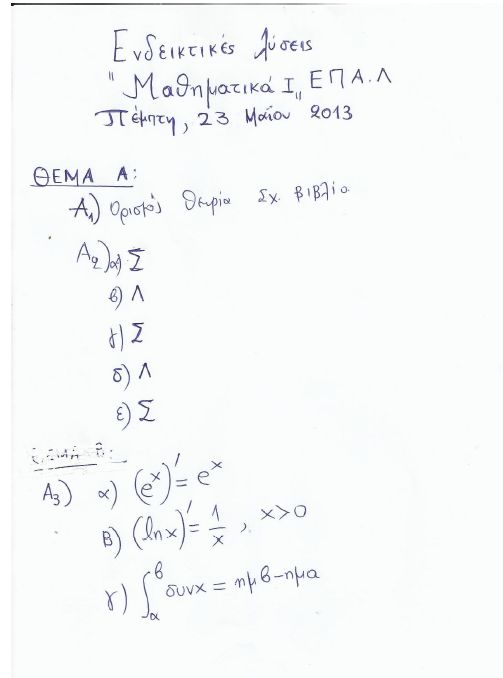 Ενδεικτικές λύσεις
"Μαθηματικά Ι" ΕΠΑ.Λ
Πέμπτη, 23 Μαΐου 2013
ΘΕΜΑ Α:
Α1) Ορισμός θεωρία σχ. βιβλίο
Α2) α) Σ
β) Λ
γ) Σ
δ) Λ
ε) Σ
ΘΕΜΑ Β:
Α3) α) (e^x)' = e^x
β) (lnx)' = 1/x, x>0
γ) ∫_α^β συνx = ημβ-ημα